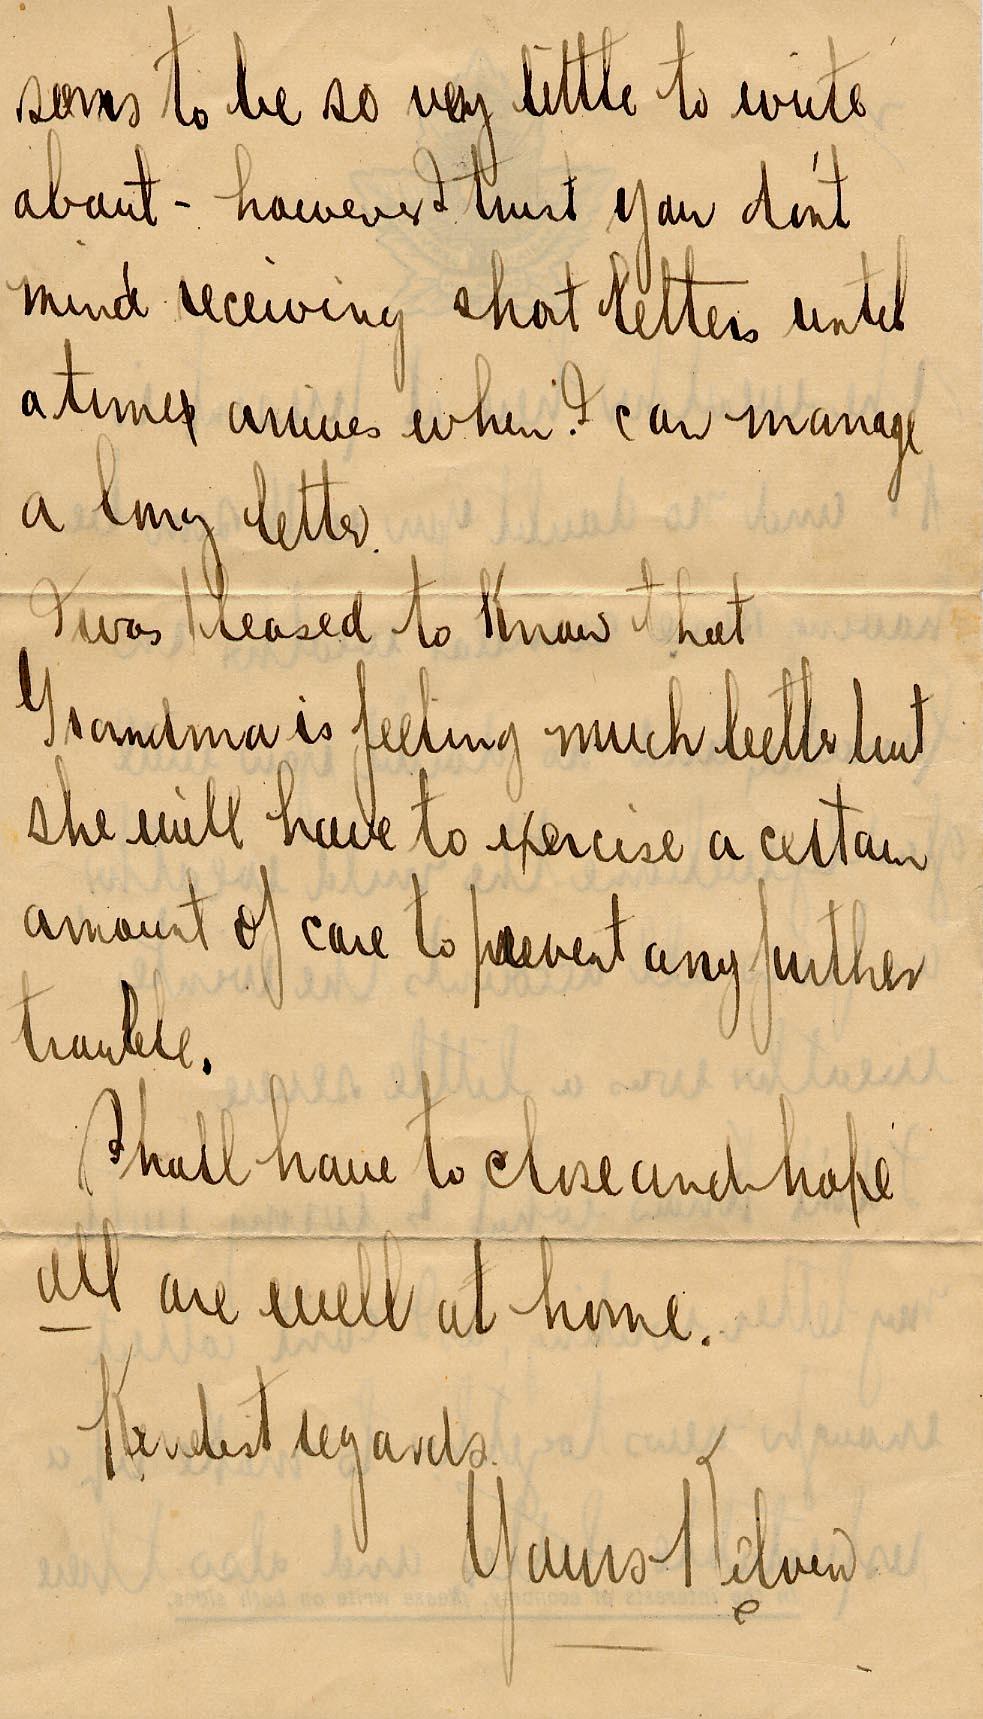 seems to be so very little to write
about - however I trust you don't
mind receiving short letters until
a time arrives when I can manage
a long letter.
I was pleased to know that
Grandma is feeling much better but
she will have to exercise a certain
amount of care to prevent any further
trouble.
Shall have to close and hope
all are well at home.
Kindest regards.
Yours
In the interests of economy, please write on both sides.